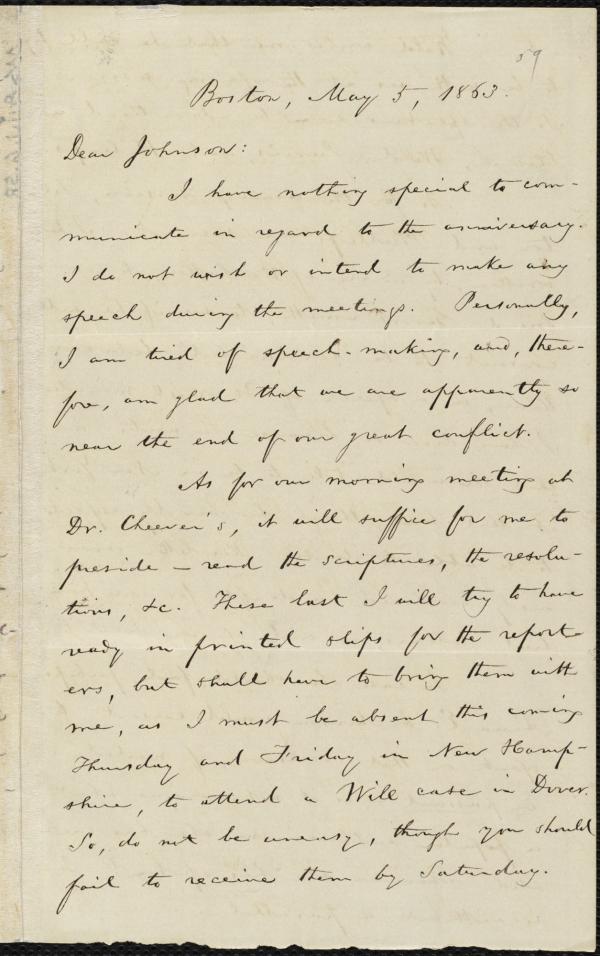 59
Boston, May 5, 1863.
Dear Johnson:
I have nothing special to com-
municate in regard to the anniversary.
I do not wish or intend to make any
speech during the meetings. Personally,
I am tired of speech-making, and, there-
fore, am glad that we are apparently so
near the end of our great conflict.
As for our morning meeting at
Dr. Cheever's, it will suffice for me to
preside — read the Scriptures, the resolu-
tions, &c. These last I will try to have
ready in printed slips for the report-
ers, but shall have to bring them with
me, as I must be absent this coming
Thursday and Friday in New Hamp-
shire, to attend a Will case in Dover.
So, do not be uneasy, though you should
fail to receive them by Saturday.